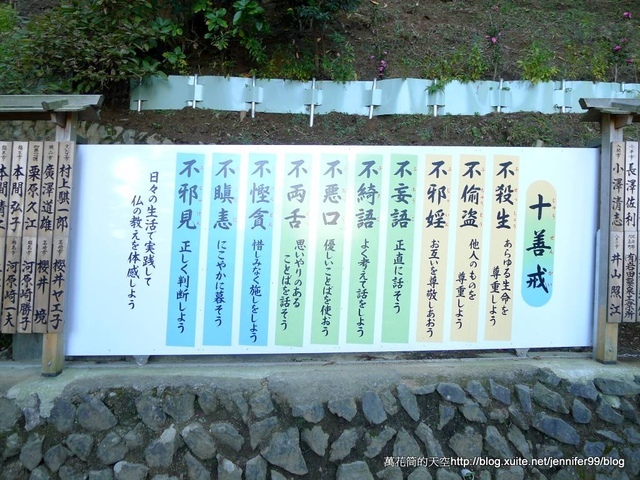 十善戒
不殺生
あらゆる生命を
尊重しよう
不偸盗
他人のものを
尊重しよう
不邪婬
お互いを尊敬しあおう
不妄語
正直に話そう
不綺語
よく考えて話をしよう
不悪口
優しいことばを使おう
不両舌
思いやりのある
ことばを話そう
不慳貪
惜しみなく施しをしよう
不瞋恚
にこやかに暮そう
不邪見
正しく判断しよう
日々の生活で実践して
仏の教えを体感しよう
長澤佐利
小澤清志
井山照江
村上騏一郎
櫻井ヤス子
廣澤道雄
櫻井境
栗原久江
河原崎勝子
本間弘子
河原崎一夫
本間清士
萬花筒的天空http://blog.xuite.net/jennifer99/blog